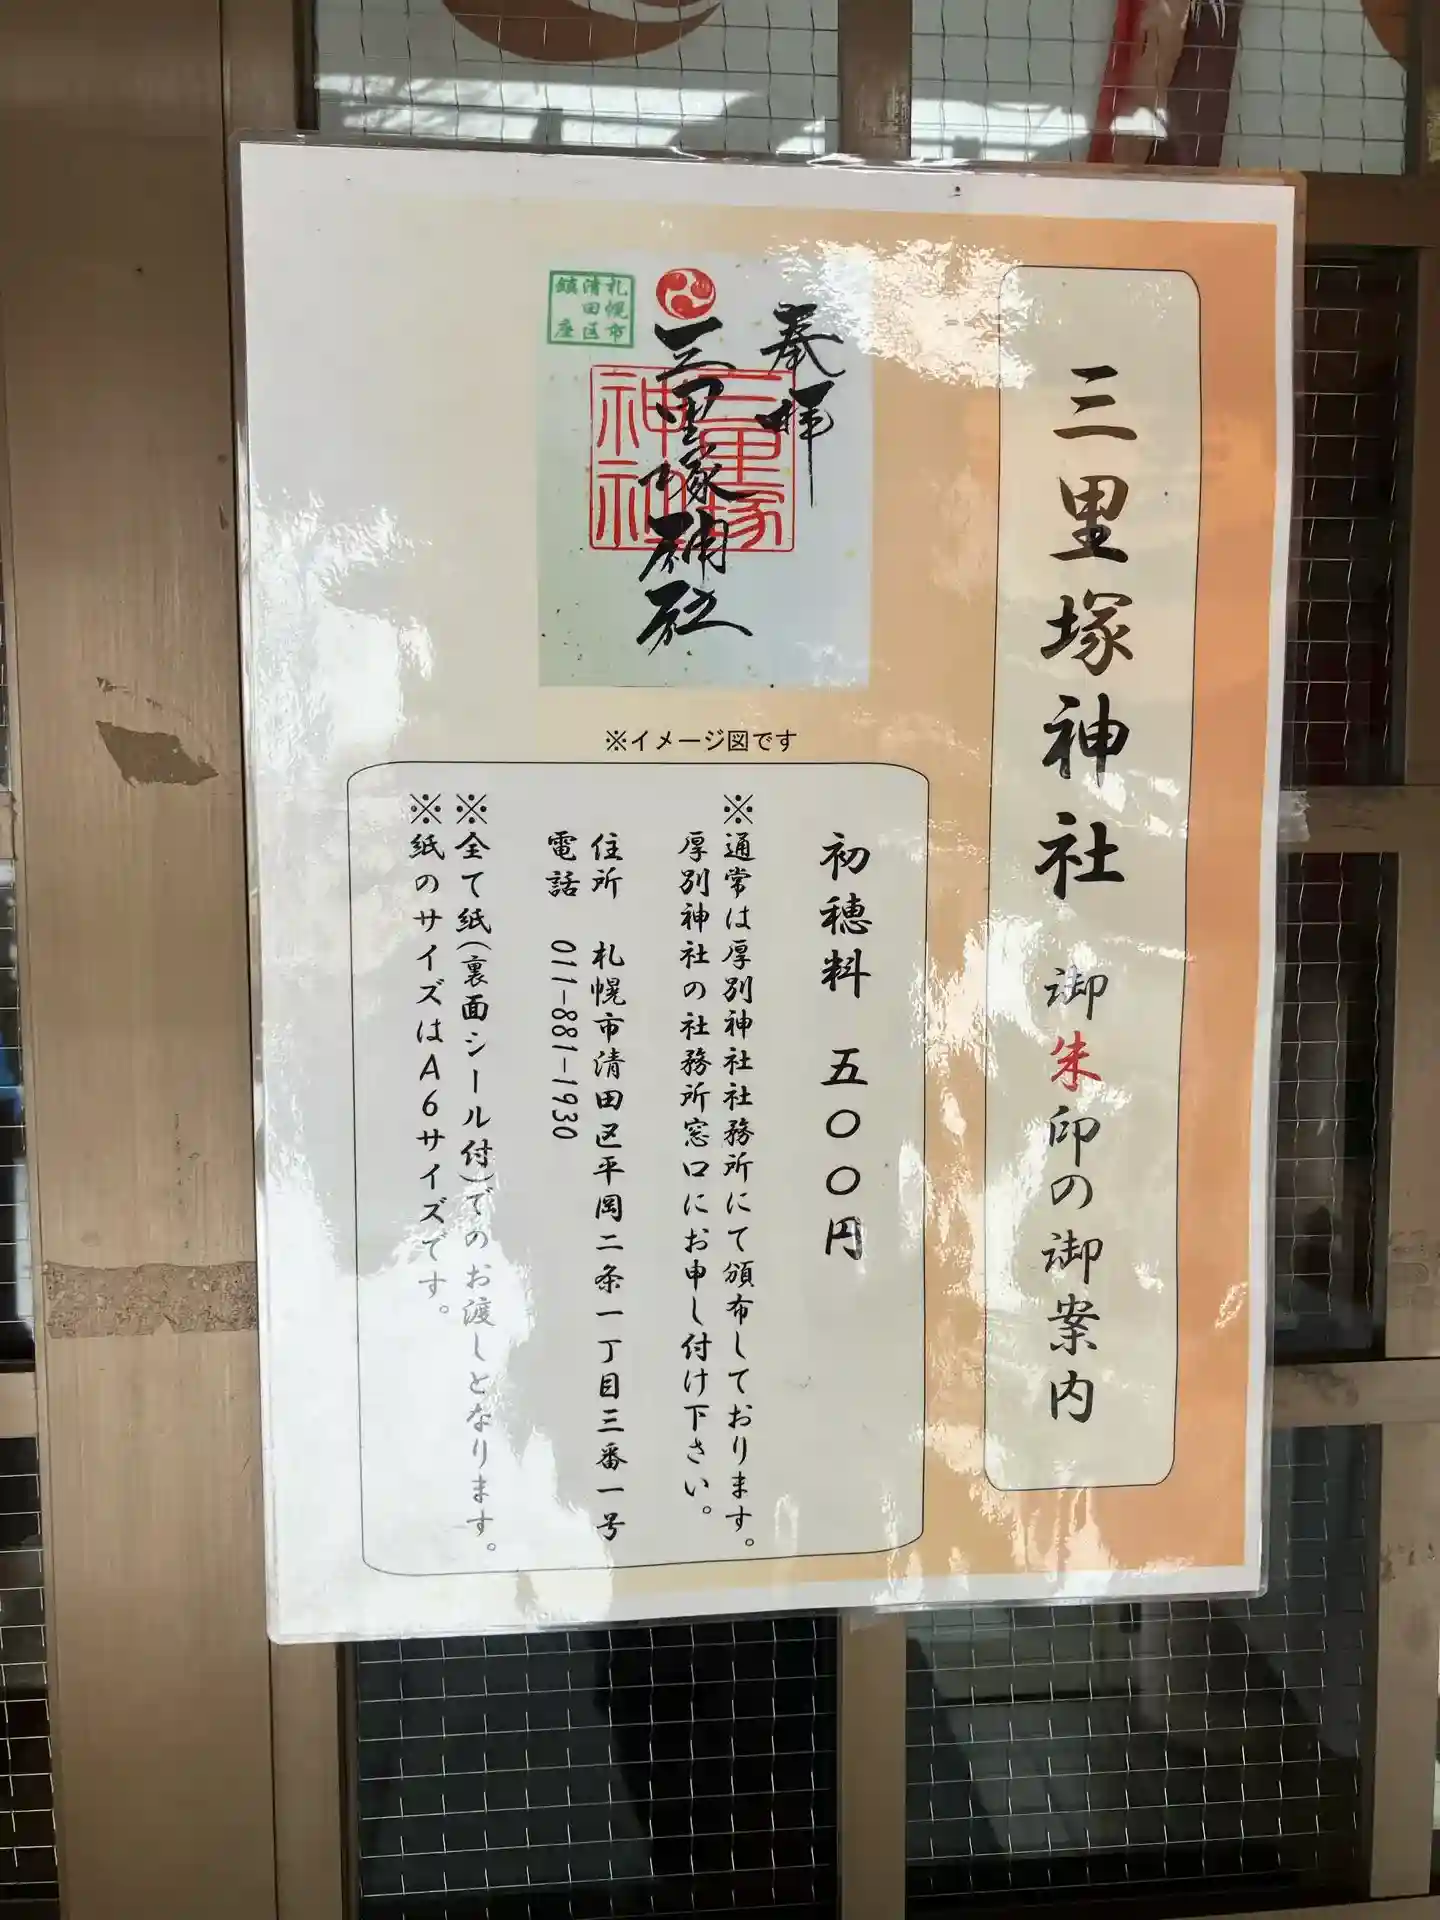 三里塚神社 御朱印の御案内
奉拝
三里塚神社
三里塚
神社
札幌市
清田区
鎮座
※イメージ図です
初穂料 五〇〇円
※通常は厚別神社社務所にて頒布しております。
厚別神社の社務所窓口にお申し付け下さい。
住所 札幌市清田区平岡二条一丁目三番一号
電話 011-881-1930
※全て紙(裏面シール付)でのお渡しとなります。
※紙のサイズはA6サイズです。